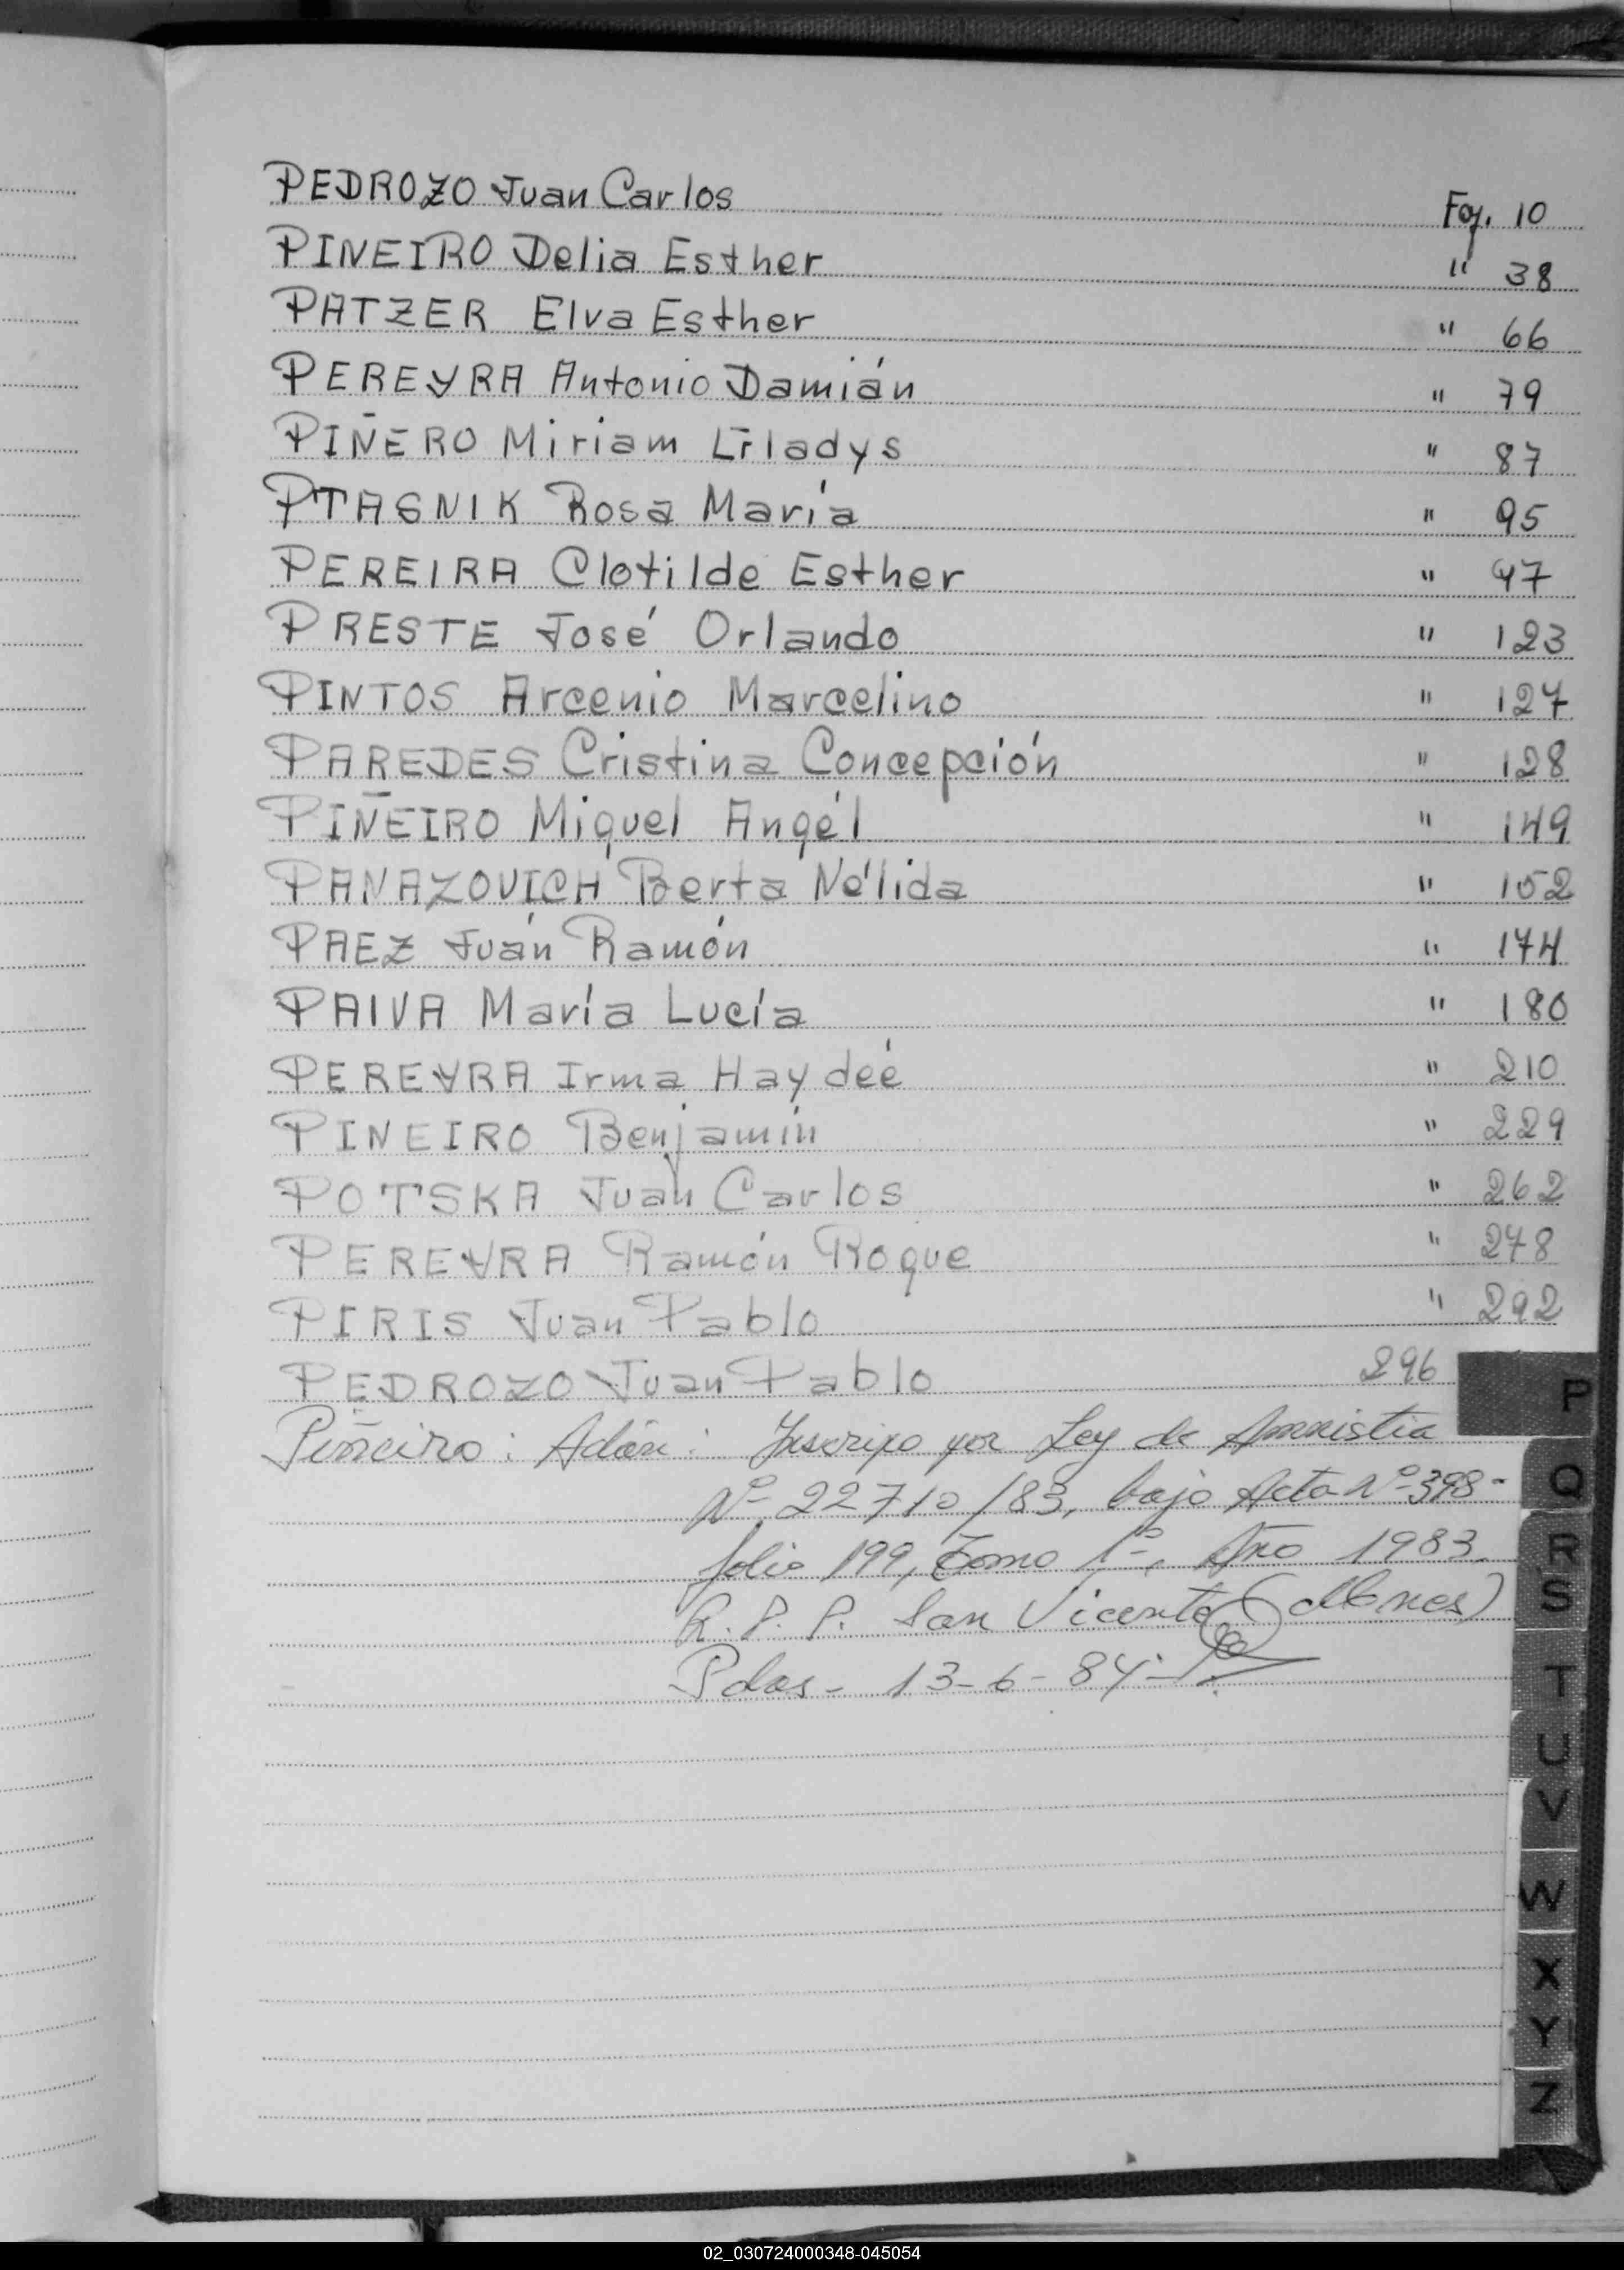 PEDROZO Juan Carlos Foj. 10
PINEIRO Delia Esther " 38
PATZER Elva Esther " 66
PEREYRA Antonio Damián " 79
PIÑERO Miriam Gladys " 87
PTASNIK Rosa María " 95
PEREIRA Clotilde Esther " 97
PRESTE José Orlando " 123
PINTOS Arcenio Marcelino " 127
PAREDES Cristina Concepción " 128
PIÑEIRO Miguel Angél " 149
PANAZOVICH Berta Nélida " 152
PAEZ Juán Ramón " 174
PAIVA María Lucía " 180
PEREYRA Irma Haydeé " 210
PINEIRO Benjamín " 229
POTSKA Juan Carlos " 262
PEREYRA Ramón Roque " 278
PIRIS Juan Pablo " 292
PEDROZO Juan Pablo 296
Piñeiro: Adán: Inscripo por Ley de Amnistia
Nº 22710/83, bajo Acta Nº 398-
folio 199, Tomo 1º, Año 1983.
R.P.P. San Vicente (Mnes)
Pdas- 13-6-84-
P
Q
R
S
T
U
V
W
X
Y
Z
02_030724000348-045054